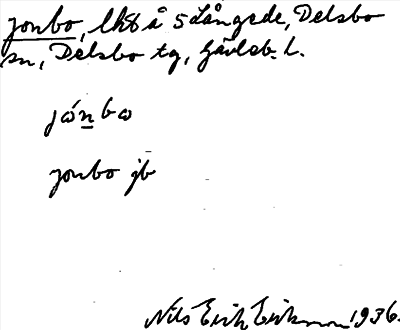 Jonbo, lht å S Långede, Delsbo
sn, Delsbo tg, Gävleb. L.
jónbo
Jonbo jb
Nils Erik Eriksson 1936.